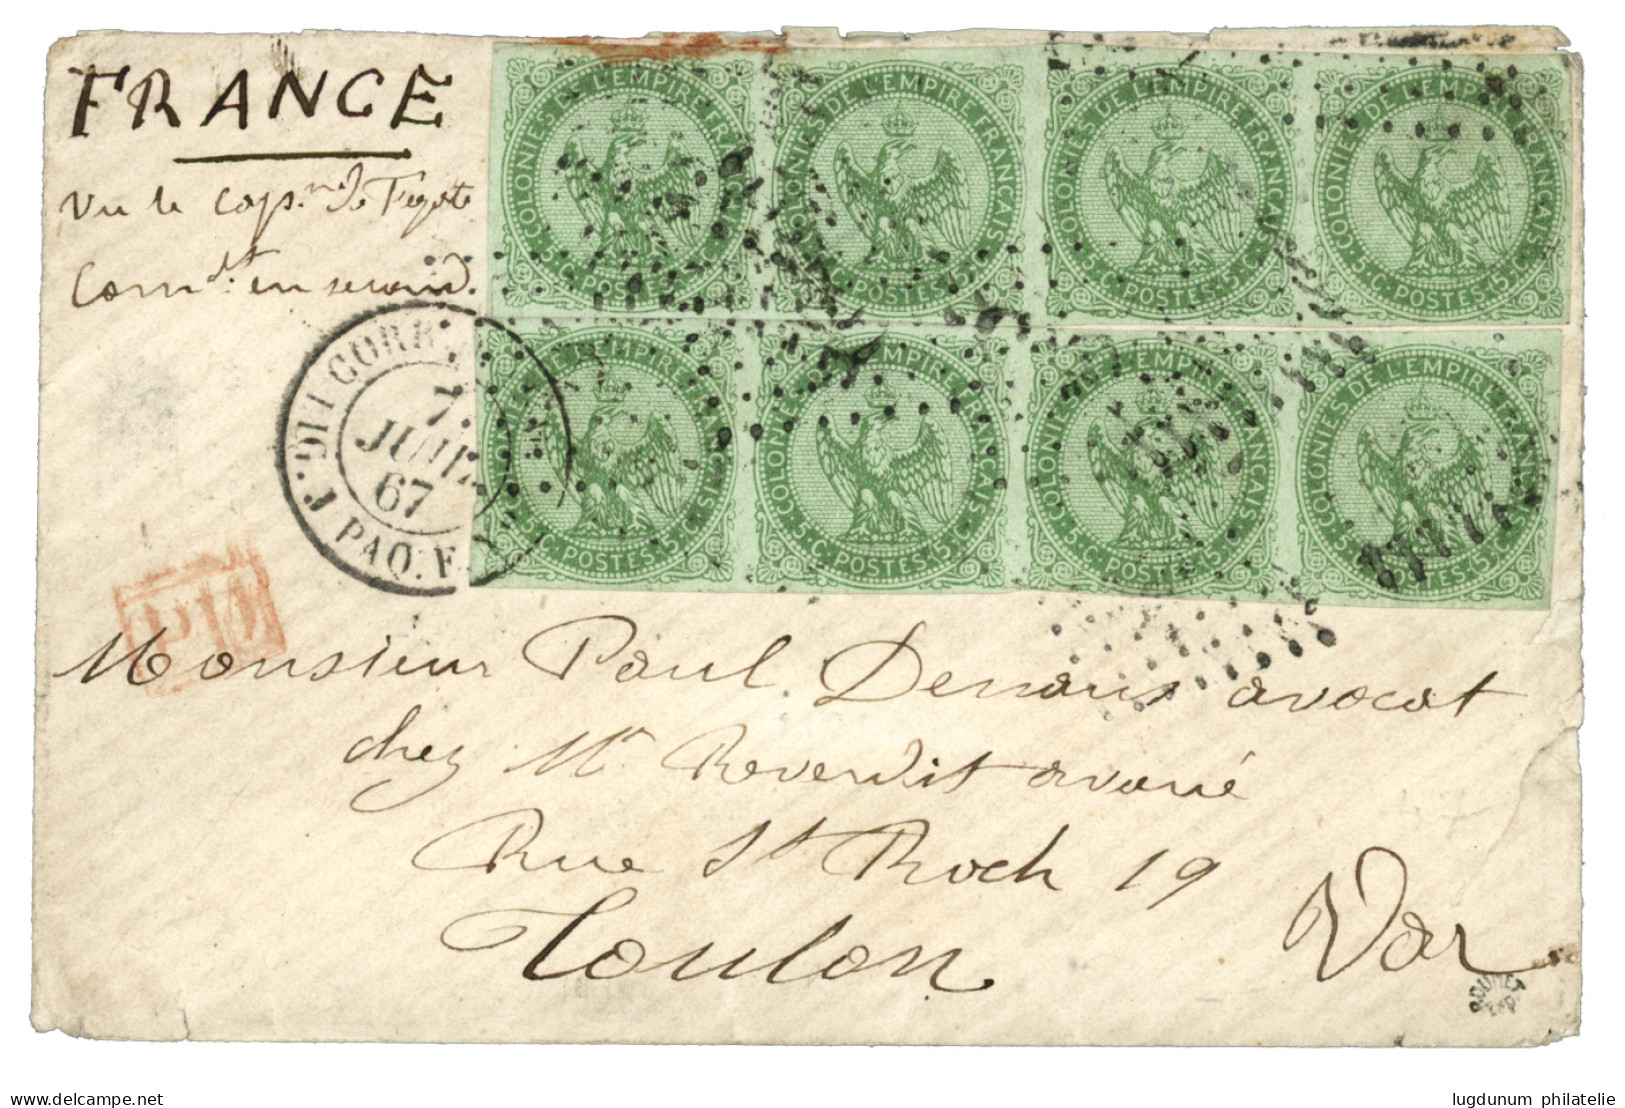 FRANCE
Vu le Cap.ne de Fregate
Com.dt en second.
COLONIES DE L'EMPIRE FRANÇAIS
5 C. POSTES. 5 C.
COLONIES DE L'EMPIRE FRANÇAIS
5 C. POSTES. 5 C.
COLONIES DE L'EMPIRE FRANÇAIS
5 C. POSTES. 5 C.
COLONIES DE L'EMPIRE FRANÇAIS
5 C. POSTES. 5 C.
COLONIES DE L'EMPIRE FRANÇAIS
5 C. POSTES. 5 C.
COLONIES DE L'EMPIRE FRANÇAIS
5 C. POSTES. 5 C.
COLONIES DE L'EMPIRE FRANÇAIS
5 C. POSTES. 5 C.
COLONIES DE L'EMPIRE FRANÇAIS
5 C. POSTES. 5 C.
CORR.
7.
JUIL.
67
PAQ. F.
Monsieur Paul Denans avocat
chez Mr Reverdit avoué
Rue St Roch 19
Toulon
Var
lugdunum philatelie